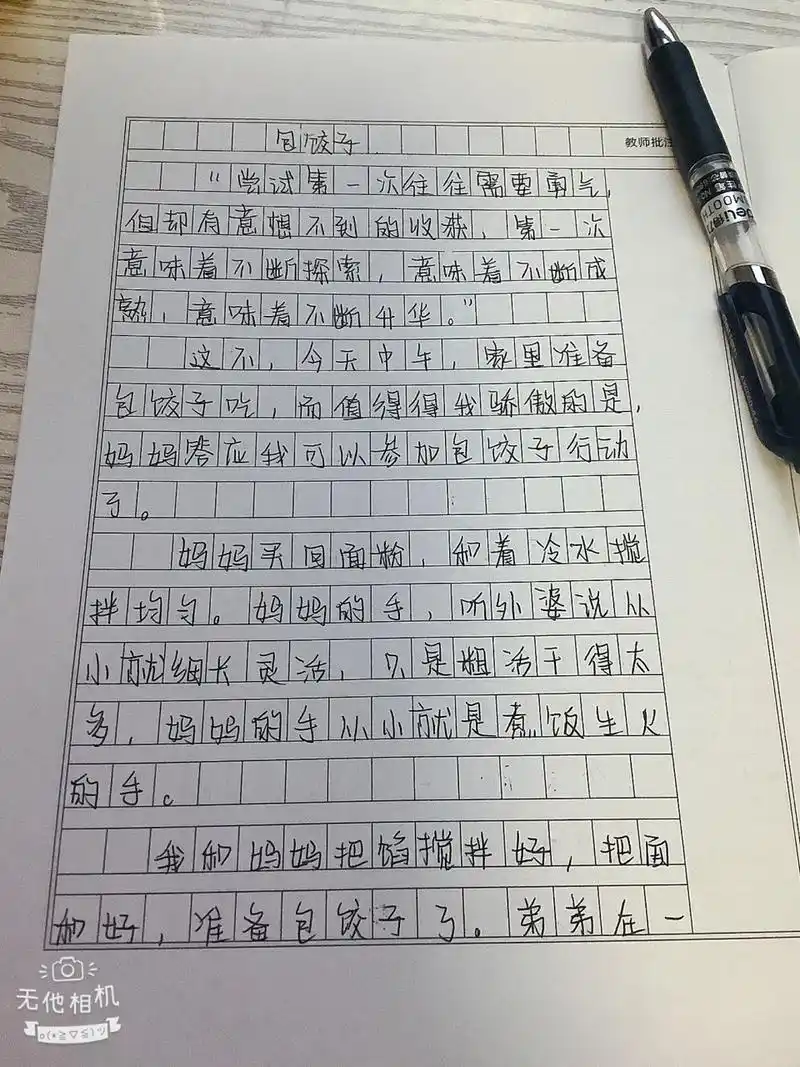 包饺子
教师批注
“尝试第一次往往需要勇气，
但却有意想不到的收获，第一次
意味着不断探索，意味着不断成
熟，意味着不断升华。”
这不，今天中午，家里准备
包饺子吃，而值得得我骄傲的是，
妈妈答应我可以参加包饺子行动
了。
妈妈买回面粉，和着冷水搅
拌均匀。妈妈的手，听外婆说从
小就细长灵活，只是粗活干得太
多，妈妈的手从小就是煮饭生火
的手。
我和妈妈把馅搅拌好，把面
和好，准备包饺子了。弟弟在一
deli
无他相机
o(≧▽≦)ツ